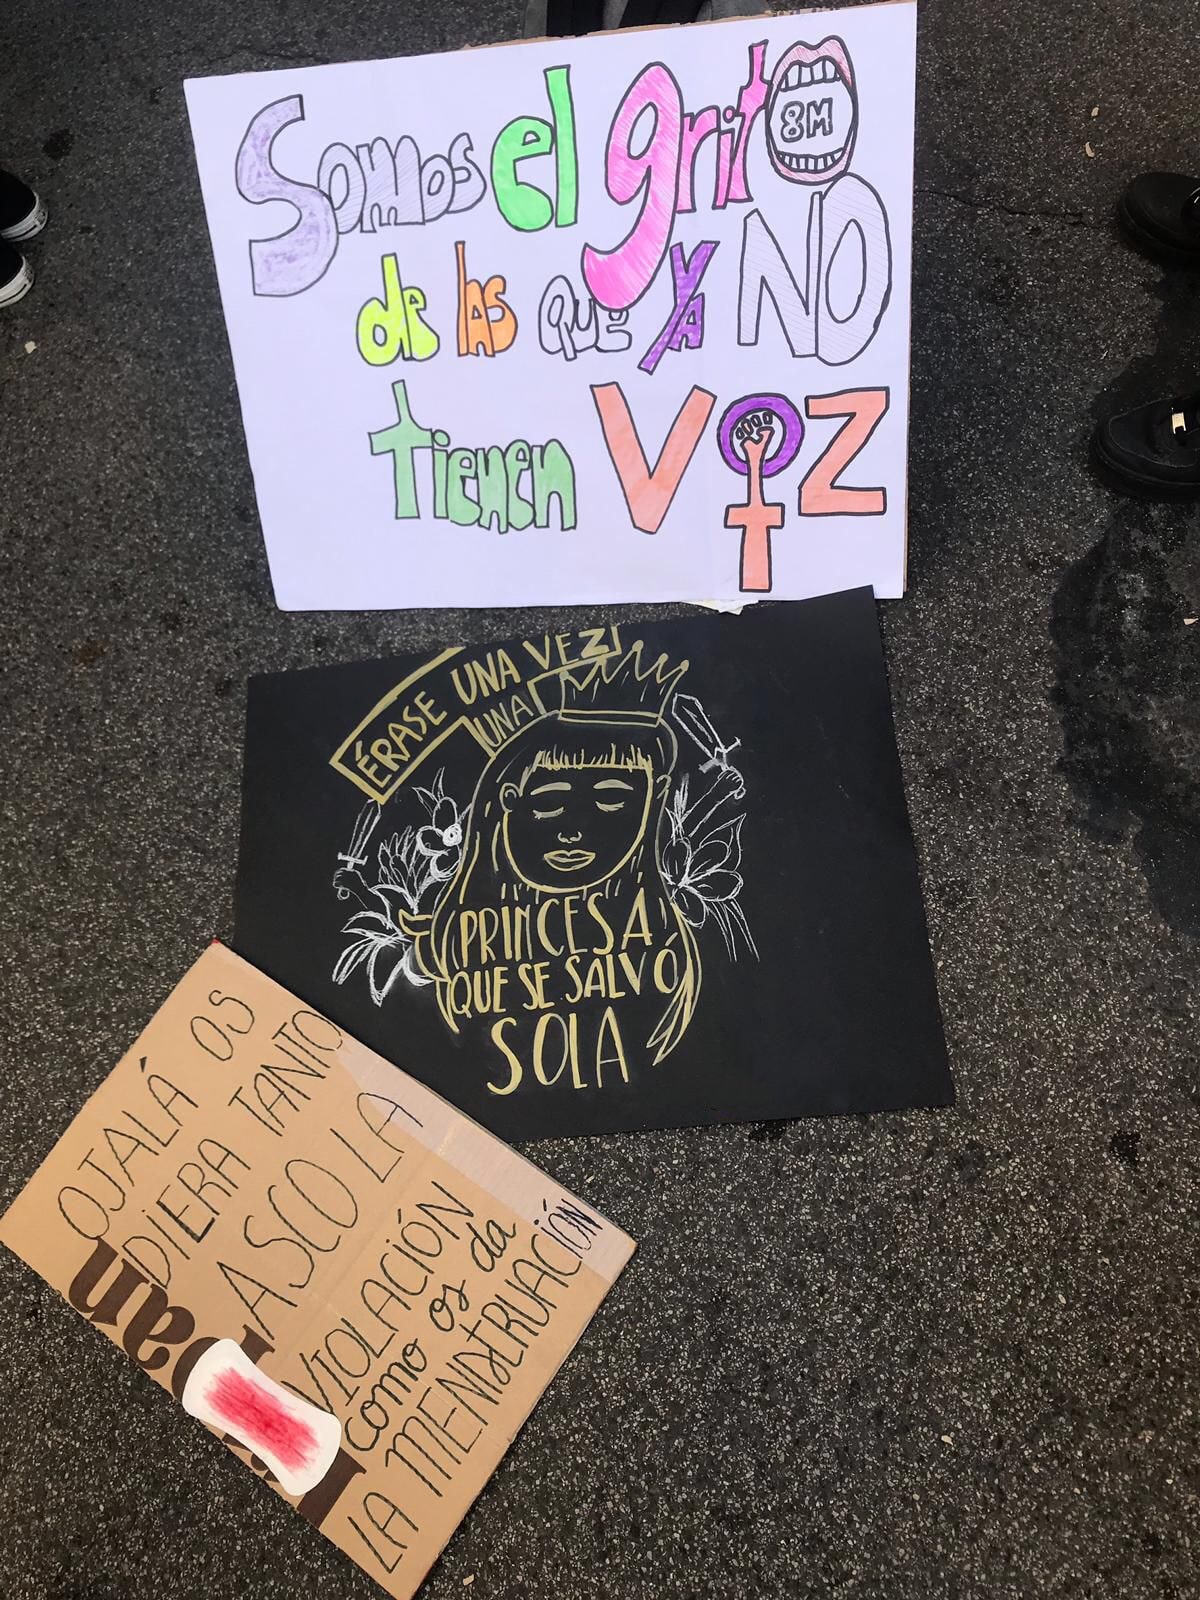 Somos el grito
8M
de las que ya NO
tienen VOZ
ÉRASE UNA VEZ
UNA
PRINCESA
QUE SE SALVÓ
SOLA
OJALÁ OS
DIERA TANTO
ASCO LA
VIOLACIÓN
como os da
LA MENSTRUACIÓN